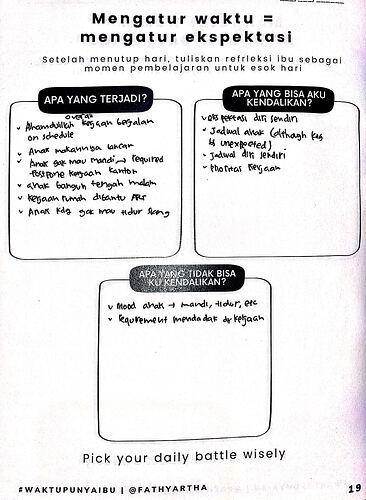 Mengatur waktu =
mengatur ekspektasi
Setelah menutup hari, tuliskan refrleksi ibu sebagai
momen pembelajaran untuk esok hari
APA YANG TERJADI?
overall
Alhamdulillah kerjaan berjalan
on schedule
Anak makannya lancar
Anak gak mau mandi → required
postpone kerjaan kantor
anak bangun tengah malam
kerjaan rumah dibantu ART
Anak kdg gak mau tidur siang
APA YANG BISA AKU
KENDALIKAN?
ekspektasi diri sendiri
Jadwal anak (although kdg
is unexpected)
Jadwal diri sendiri
Prioritas kerjaan
APA YANG TIDAK BISA
KU KENDALIKAN?
Mood anak → mandi, tidur, etc
requirement mendadak dr kerjaan
Pick your daily battle wisely
#WAKTUPUNYAIBU | @FATHYARTHA
19